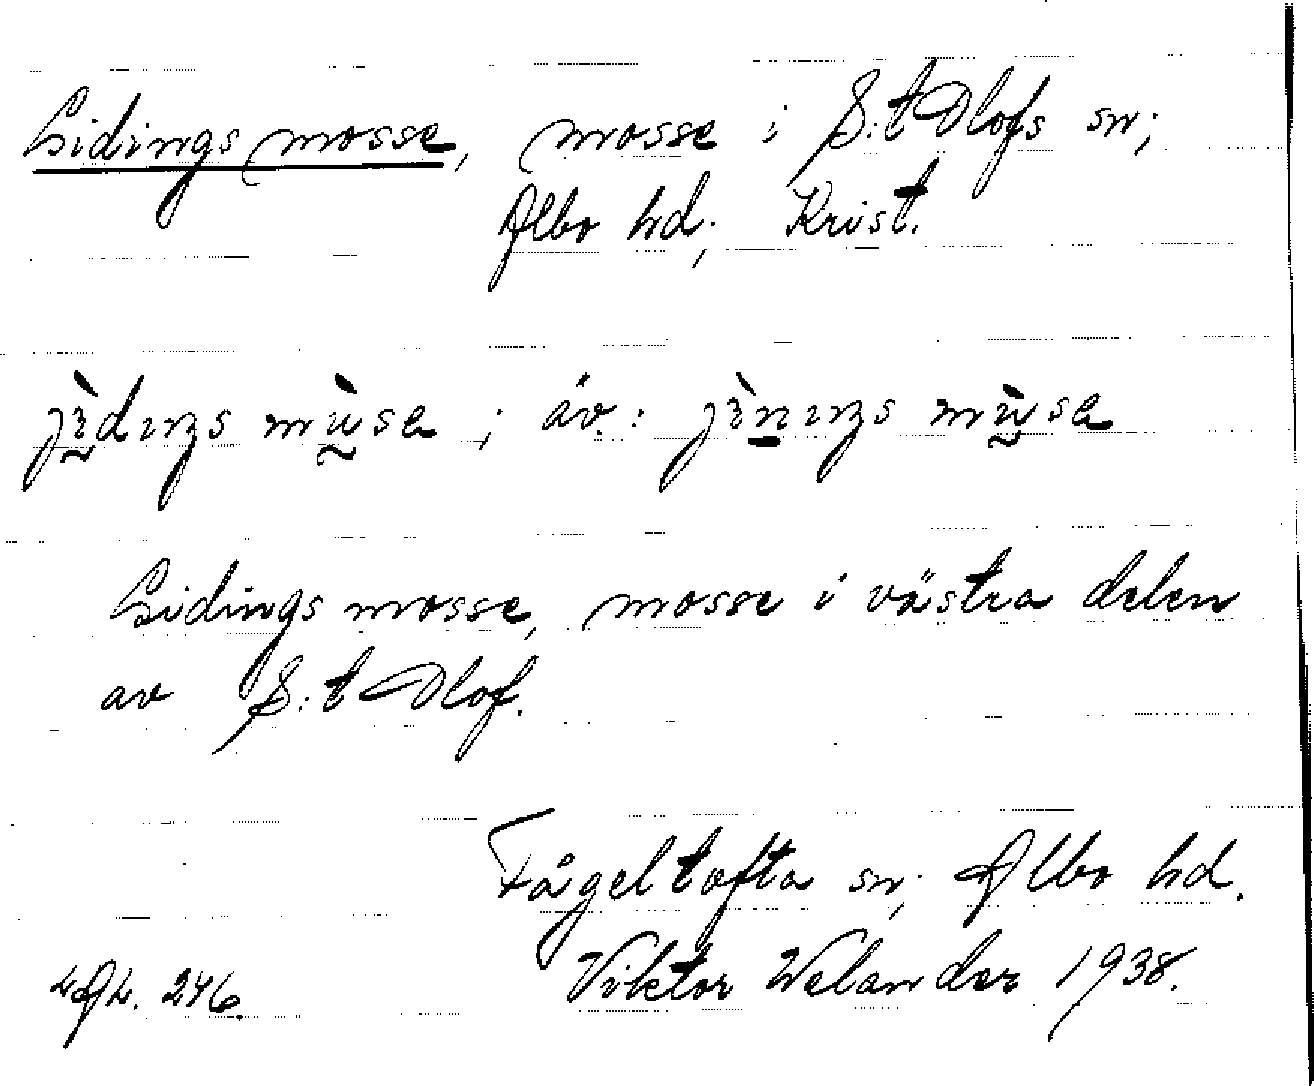 Lidings mosse, mosse i S:t Olofs sn;
Albo hd; Krist.
mùse; äv: mùse
Lidings mosse, mosse i västra delen
av S:t Olof.
Fågeltofta sn; Albo hd.
246. Viktor Welander 1938.